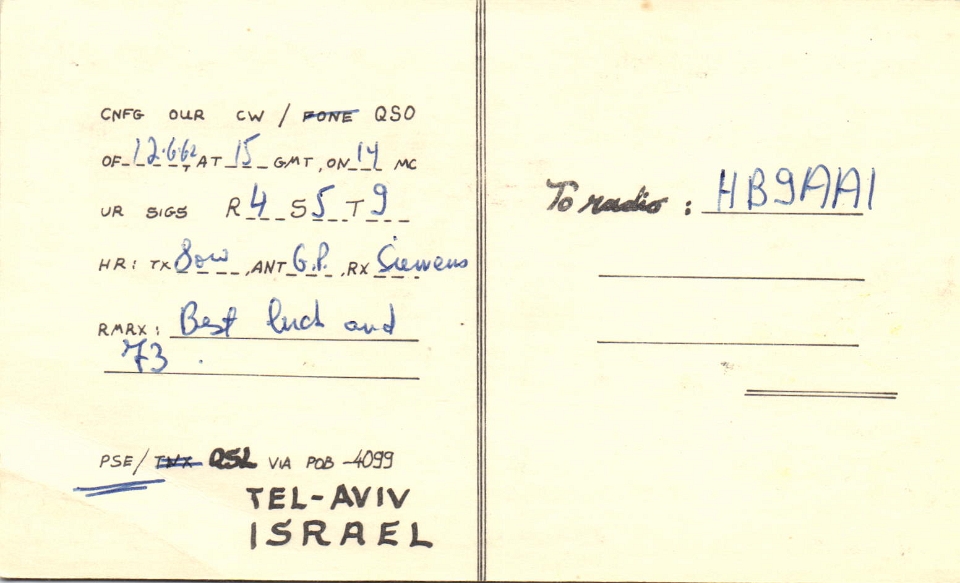 CNFG OUR CW / FONE QSO
OF 12.6.62 AT 15 GMT, ON 14 MC
UR SIGS R 4 S 5 T 9
HR: TX 80W, ANT G.P., RX Siemens
RMRX: Best luck and
73.
PSE / TNX QSL VIA POB -4099
TEL-AVIV
ISRAEL
To radio: HB9AAI